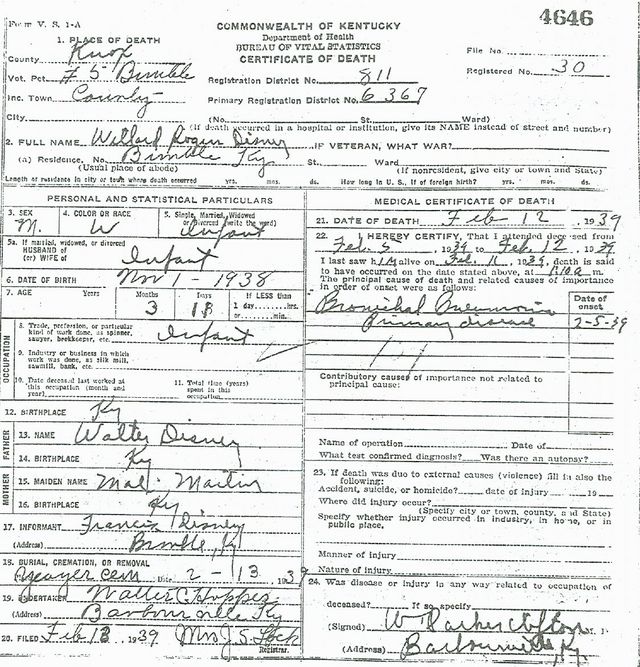 Form V. S. 1-A
4646
COMMONWEALTH OF KENTUCKY
Department of Health
BUREAU OF VITAL STATISTICS
CERTIFICATE OF DEATH
1. PLACE OF DEATH
County Knox
Vot. Pct. # 5 Bimble
Inc. Town County
City
File No.
Registered No. 30
Registration District No. 811
Primary Registration District No. 6367
(No. St. Ward)
(If death occurred in a hospital or institution, give its NAME instead of street and number)
2. FULL NAME Willard Rogan Disney IF VETERAN, WHAT WAR?
(a) Residence. No. Bimble Ky St. Ward
(Usual place of abode) (If nonresident, give city or town and State)
Length of residence in city or town where death occurred yrs. mos. ds. How long in U. S., if of foreign birth? yrs. mos. ds.
PERSONAL AND STATISTICAL PARTICULARS
3. SEX M. 4. COLOR OR RACE W 5. Single, Married, Widowed
or Divorced (write the word) Infant
5a. If married, widowed, or divorced
HUSBAND of
(or) WIFE of Infant
6. DATE OF BIRTH Nov 1 1938
7. AGE Years Months Days If LESS than
3 18 1 day hrs.
or min.
OCCUPATION
8. Trade, profession, or particular
kind of work done, as spinner,
sawyer, bookkeeper, etc. Infant
9. Industry or business in which
work was done, as silk mill,
sawmill, bank, etc.
10. Date deceased last worked at
this occupation (month and
year)
11. Total time (years)
spent in this
occupation
12. BIRTHPLACE Ky
FATHER
13. NAME Walter Disney
14. BIRTHPLACE Ky
MOTHER
15. MAIDEN NAME Mal. Martin
16. BIRTHPLACE Ky
17. INFORMANT Francis Disney
(Address) Bimble, Ky
18. BURIAL, CREMATION, OR REMOVAL
Cem Date 2-13 1939
19. UNDERTAKER Walter C Hopper
(Address) Barbourville Ky
20. FILED Feb 13 1939 Mrs J. S. Lock
Registrar.
MEDICAL CERTIFICATE OF DEATH
21. DATE OF DEATH Feb 12 1939
22. I HEREBY CERTIFY, That I attended deceased from
Feb. 5 1939 to Feb. 12 1939
I last saw him alive on Feb. 11 1939, death is said
to have occurred on the date stated above, at 1:10 a m.
The principal cause of death and related causes of importance
in order of onset were as follows:
Date of
onset
Bronchial Pneumonia
Primary disease 2-5-39
Contributory causes of importance not related to
principal cause:
Name of operation Date of
What test confirmed diagnosis? Was there an autopsy?
23. If death was due to external causes (violence) fill in also the
following:
Accident, suicide, or homicide? date of injury 19
Where did injury occur?
(Specify city or town, county, and State)
Specify whether injury occurred in industry, in home, or in
public place.
Manner of injury
Nature of injury
24. Was disease or injury in any way related to occupation of
deceased? If so, specify
(Signed) W Parker Clifton M. D.
(Address) Barbourville Ky